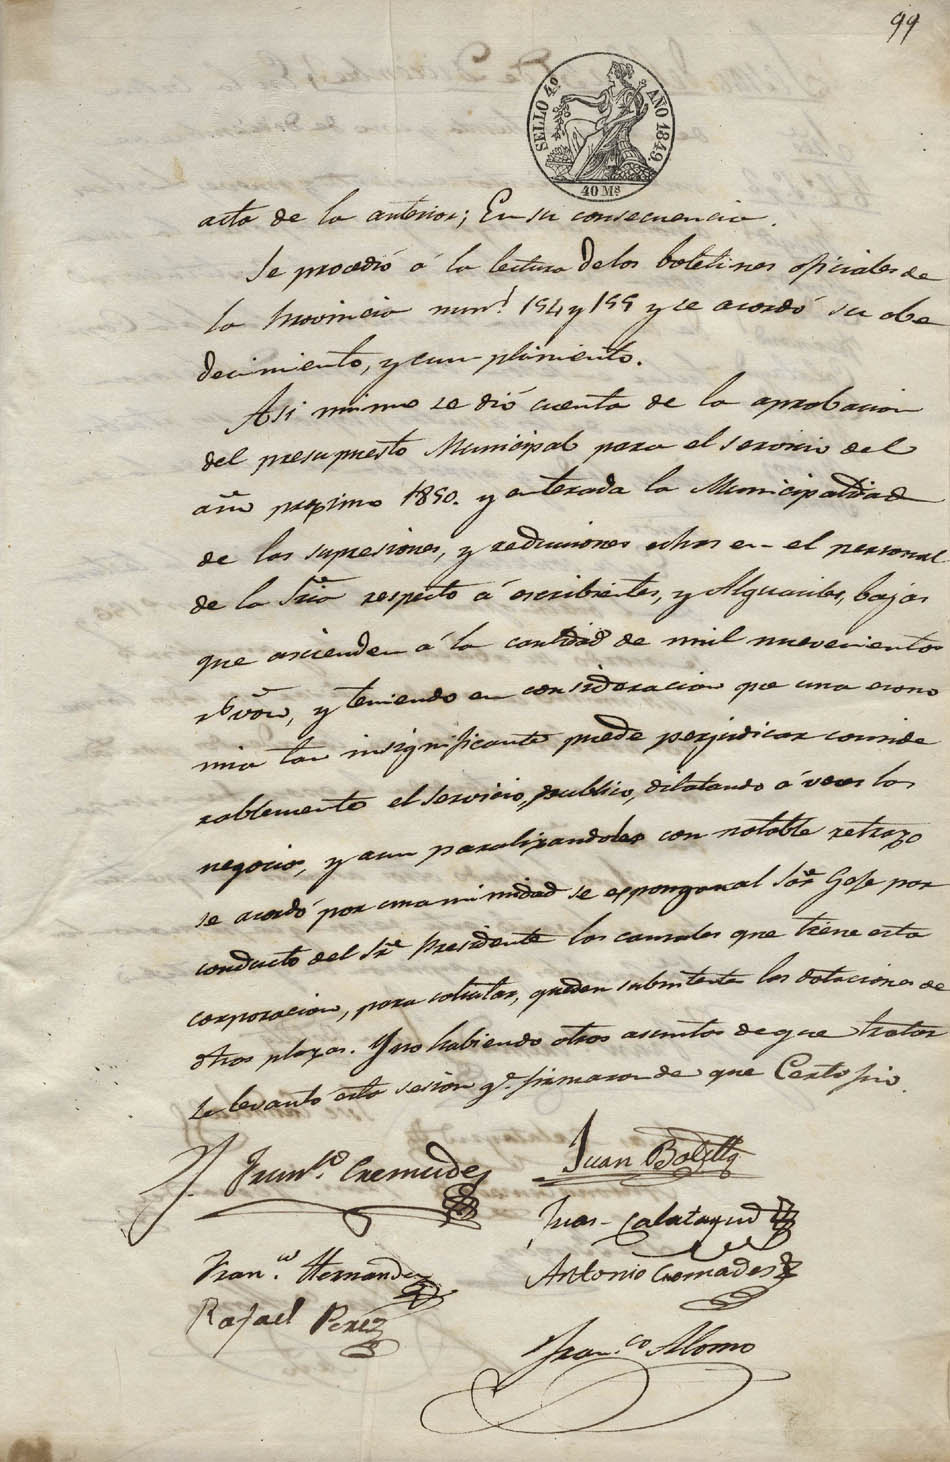 99
SELLO 4º AÑO 1849.
40 Ms
acta de la anterior; En su consecuencia.
Se procedió á la lectura de los boletines oficiales de
la Provincia nums 154 y 155 y se acordó su obe
decimiento, y cumplimiento.
Asi mismo se dió cuenta de la aprobacion
del presupuesto Municipal para el servicio del
año proximo 1850. y enterada la Municipalidad
de las supresiones, y reducciones echas en el personal
de la Sria respecto á escribientes, y Alguaciles, bajas
que ascienden á la cantidad de mil nuevecientos
rs von, y teniendo en consideracion que una econo
mia tan insignificante puede perjudicar conside
rablemente el servicio publico, dilatando á veces los
negocios, y aun paralizandoles con notable retrazo
se acordó por unanimidad se espongan al Sor Gefe por
conducto del Sr Presidente las causales que tiene esta
corporacion, para solicitar, queden subsistente las dotaciones de
otras plazas. Y no habiendo otros asuntos de que tratar
se levantó esta sesion qe firmaron de que Certifico.
Franco Cremades
Juan Botella
Juan Calatayud
Franco Hernandez
Antonio Cremades
Rafael Perez
Franco Alomo